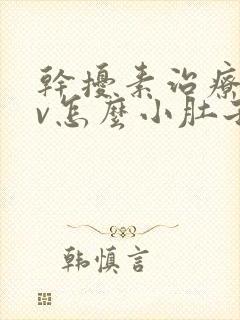 幹擾素治療
v怎麼小肚子
韩慎言